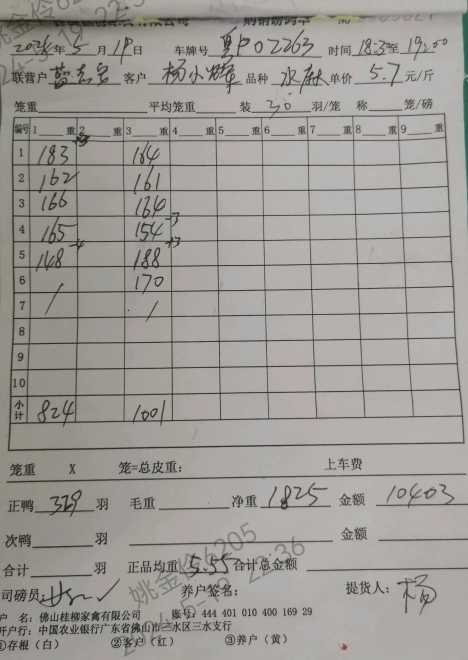 年5月19日 车牌号 02263 时间18:3至19:00
联营户 客户 杨小 品种 水麻 单价5.7元/斤
笼重 平均笼重 装30羽/笼 称 笼/磅
编号 1 重 2 重 3 重 4 重 5 重 6 重 7 重 8 重 9 重
1 183 164
2 162 161
3 166 164
4 165 154
5 148 188
6 170
7 / /
8
9
10
小计 824 1001
笼重 X 笼=总皮重: 上车费
正鸭 329 羽 毛重 净重 1825 金额 10403
次鸭 羽 金额
合计 羽 正品均重 5.55 合计总金额
司磅员: 养户签名: 提货人: 杨
户 名: 佛山桂柳家禽有限公司 账号: 444 401 010 400 169 29
开户行: 中国农业银行广东省佛山市三水区三水支行
①存根(白) ②客户(红) ③养户(黄)
姚金伶6205
22:36